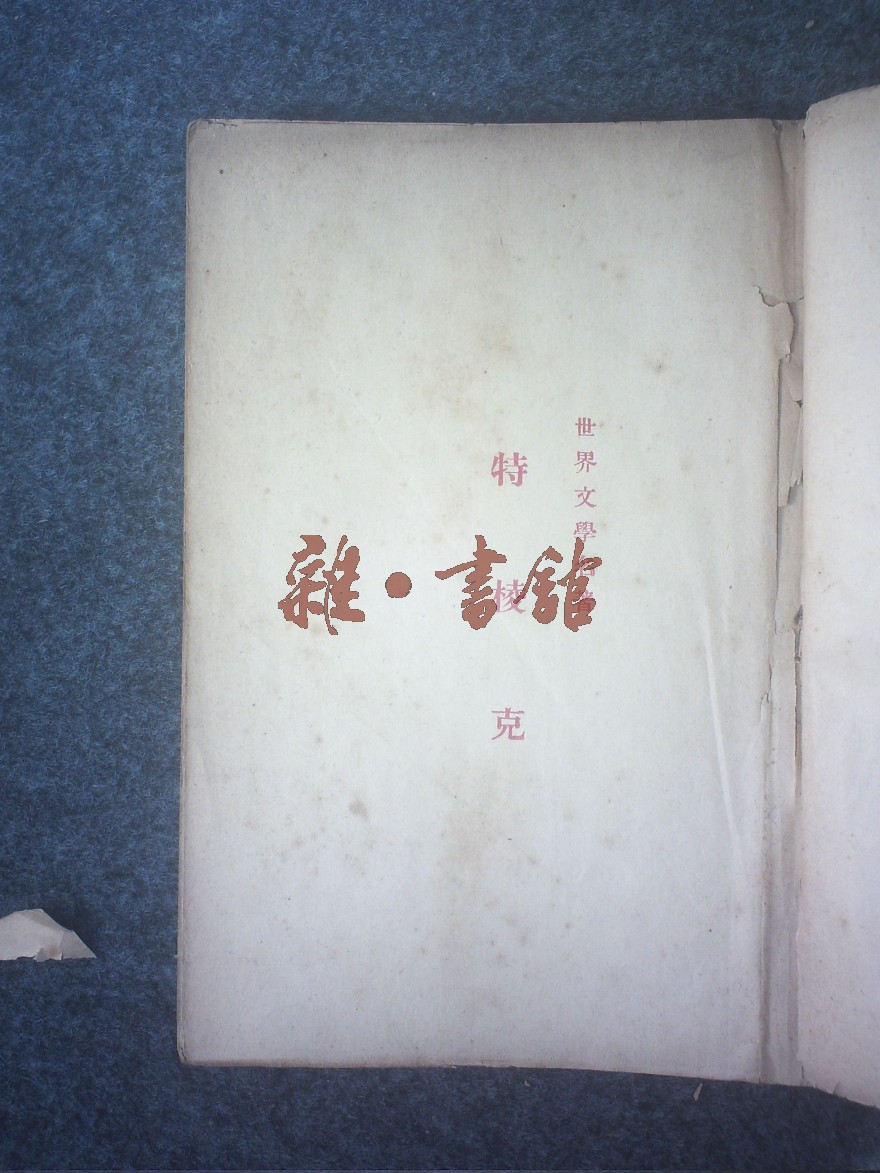 世界文學名著
特棱克
雜·書館